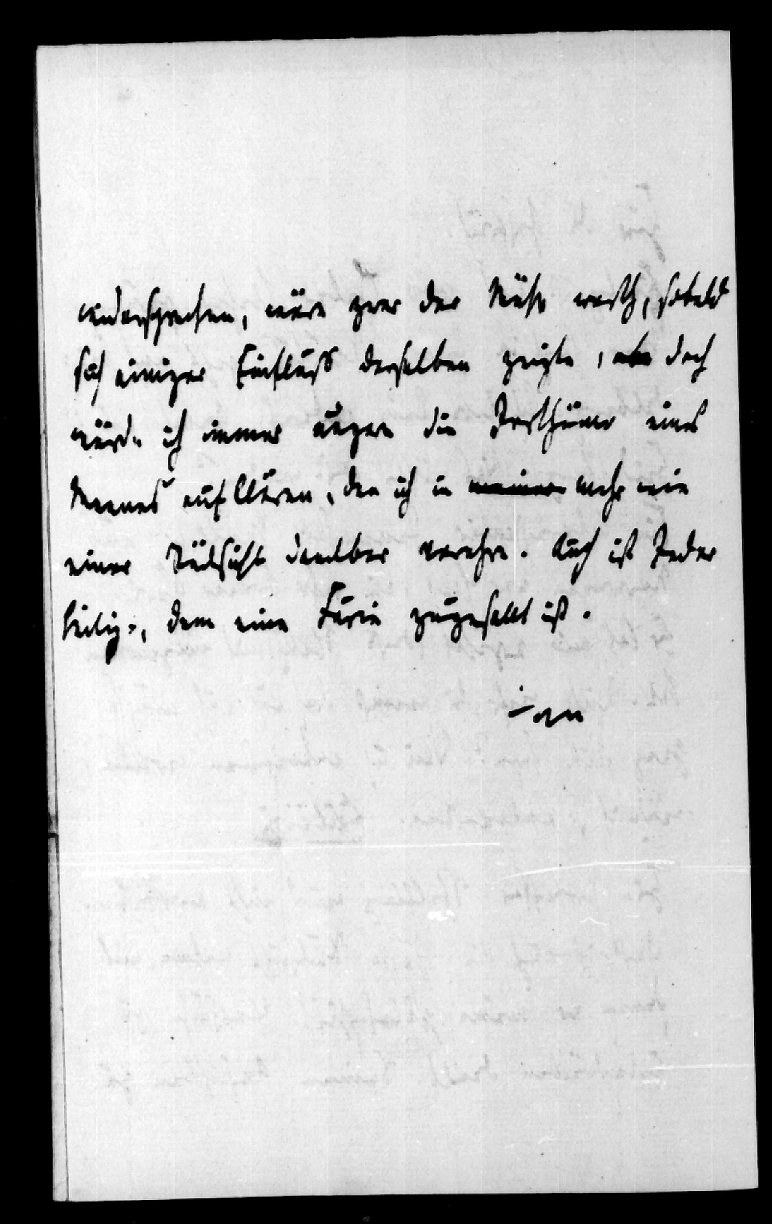 widersprechen, wäre zwar der Mühe werth, sobald
sich einiger Einfluss derselben zeigte, aber doch
würde ich immer ungern die Irrthümer eines
Mannes aufklären, den ich in meiner mehr wie
einer Rücksicht dankbar verehre. Auch ist Jeder
heilig, dem eine Furie zugesellt ist.